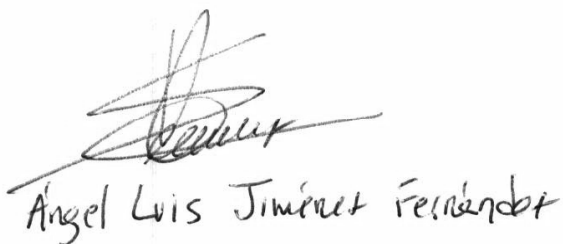 Ángel Luis Jiménez Fernández